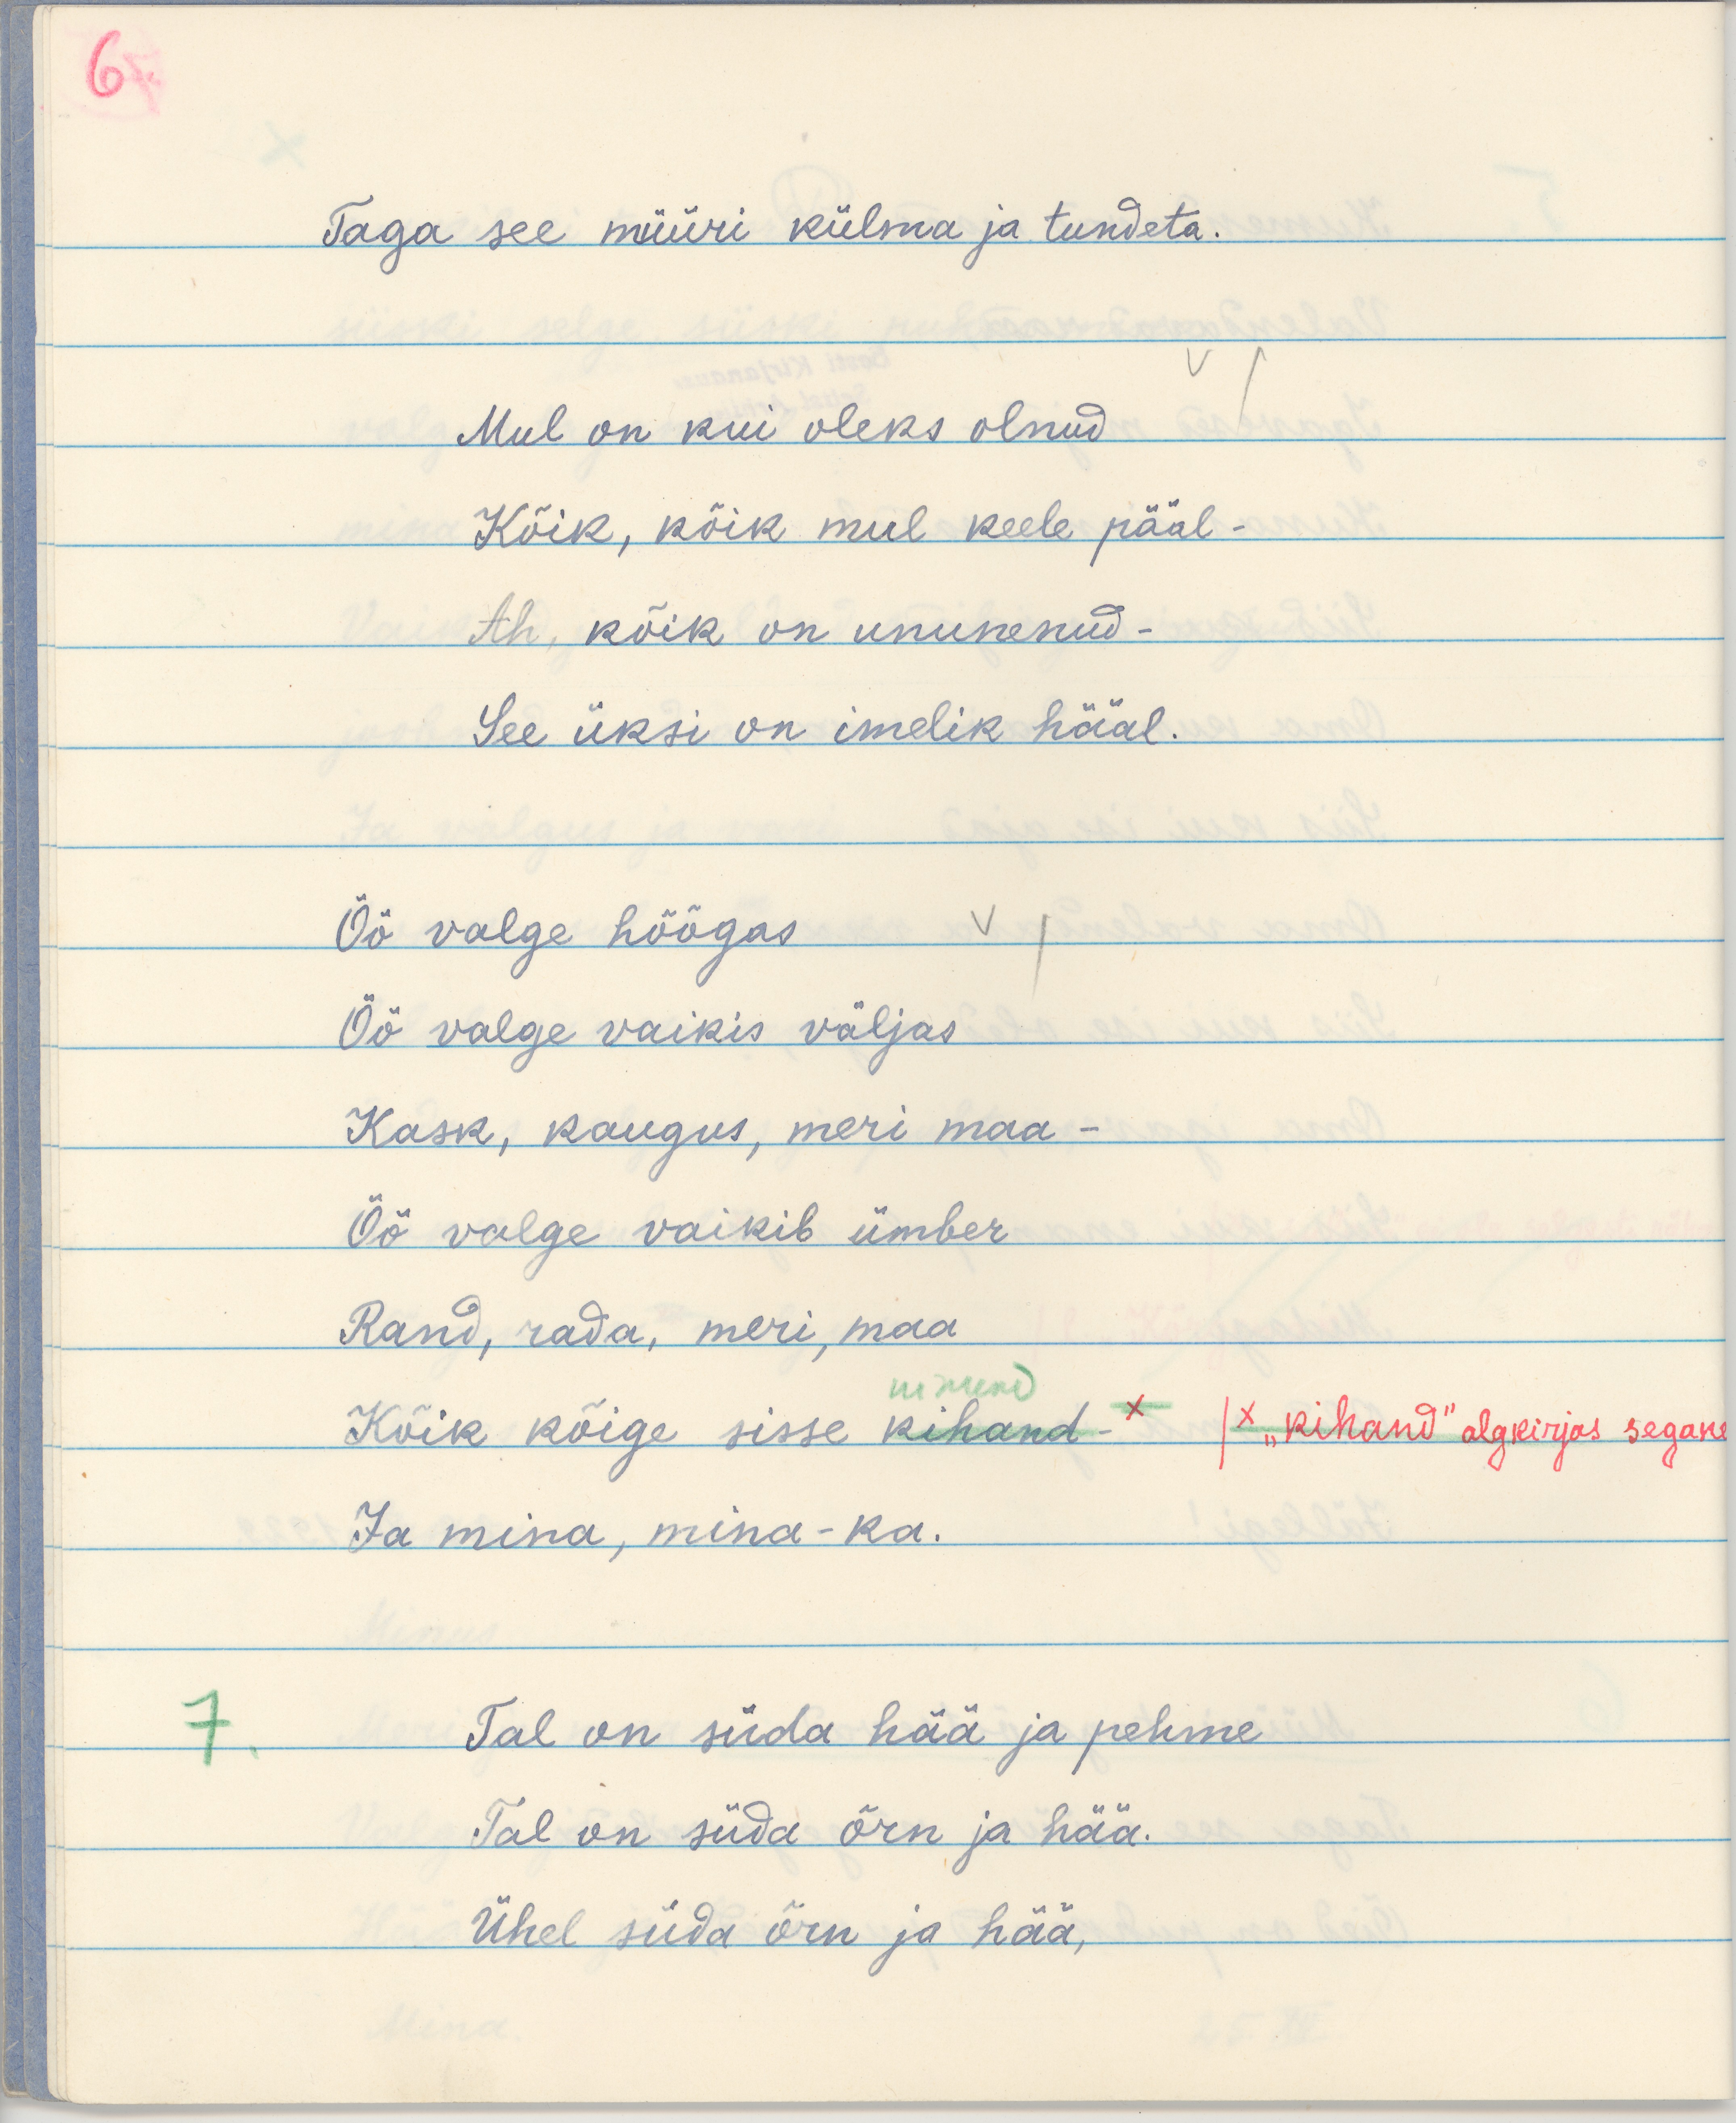 6.
Taga see müüri külma ja tundeta.
Mul on kui oleks olnud
Kõik, kõik mul keele pääl -
Ah, kõik on ununenud -
See üksi on imelik hääl.
Öö valge hõõgas
Öö valge vaikis väljas
Kask, kaugus, meri maa -
Öö valge vaikib ümber
Rand, rada, meri, maa
Kõik kõige sisse kihand - x | x „kihand" algkirjas segane
Ja mina, mina - ka.
7. Tal on süda hää ja pehme
Tal on süda õrn ja hää.
Ühel süda õrn ja hää,